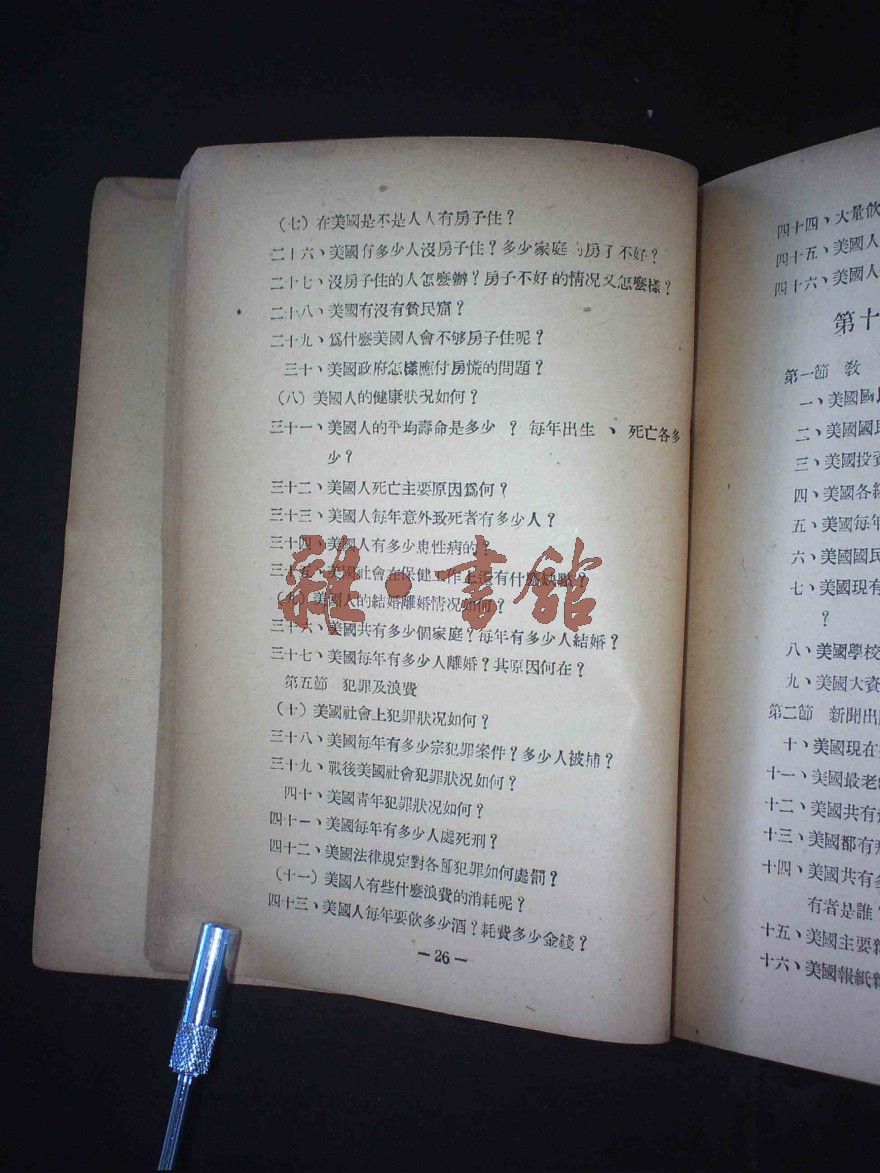 （七）在美國是不是人人有房子住？
二十六、美國有多少人沒房子住？多少家庭的房子不好？
二十七、沒房子住的人怎麼辦？房子不好的情況又怎麼樣？
二十八、美國有沒有貧民窟？
二十九、爲什麼美國人會不够房子住呢？
三十、美國政府怎樣應付房慌的問題？
（八）美國人的健康狀況如何？
三十一、美國人的平均壽命是多少？每年出生、死亡各多
少？
三十二、美國人死亡主要原因爲何？
三十三、美國人每年意外致死者有多少人？
三十四、美國人有多少患性病的？
三十五、美國社會在保健工作上還有什麼缺點？
（九）美國人的結婚離婚情況如何？
三十六、美國共有多少個家庭？每年有多少人結婚？
三十七、美國每年有多少人離婚？其原因何在？
第五節 犯罪及浪費
（十）美國社會上犯罪狀況如何？
三十八、美國每年有多少宗犯罪案件？多少人被捕？
三十九、戰後美國社會犯罪狀況如何？
四十、美國青年犯罪狀況如何？
四十一、美國每年有多少人處死刑？
四十二、美國法律規定對各種犯罪如何處罰？
（十一）美國人有些什麼浪費的消耗呢？
四十三、美國人每年要飲多少酒？耗費多少金錢？
—26—
雜·書館
四十四、大量飲
四十五、美國人
四十六、美國人
第十
第一節 敎
一、美國國民
二、美國國民
三、美國投資
四、美國各
五、美國每年
六、美國國民
七、美國現有
？
八、美國學校
九、美國大資
第二節 新聞出
十、美國現在
十一、美國最老
十二、美國共有
十三、美國都有
十四、美國共有多
有者是誰
十五、美國主要
十六、美國報紙